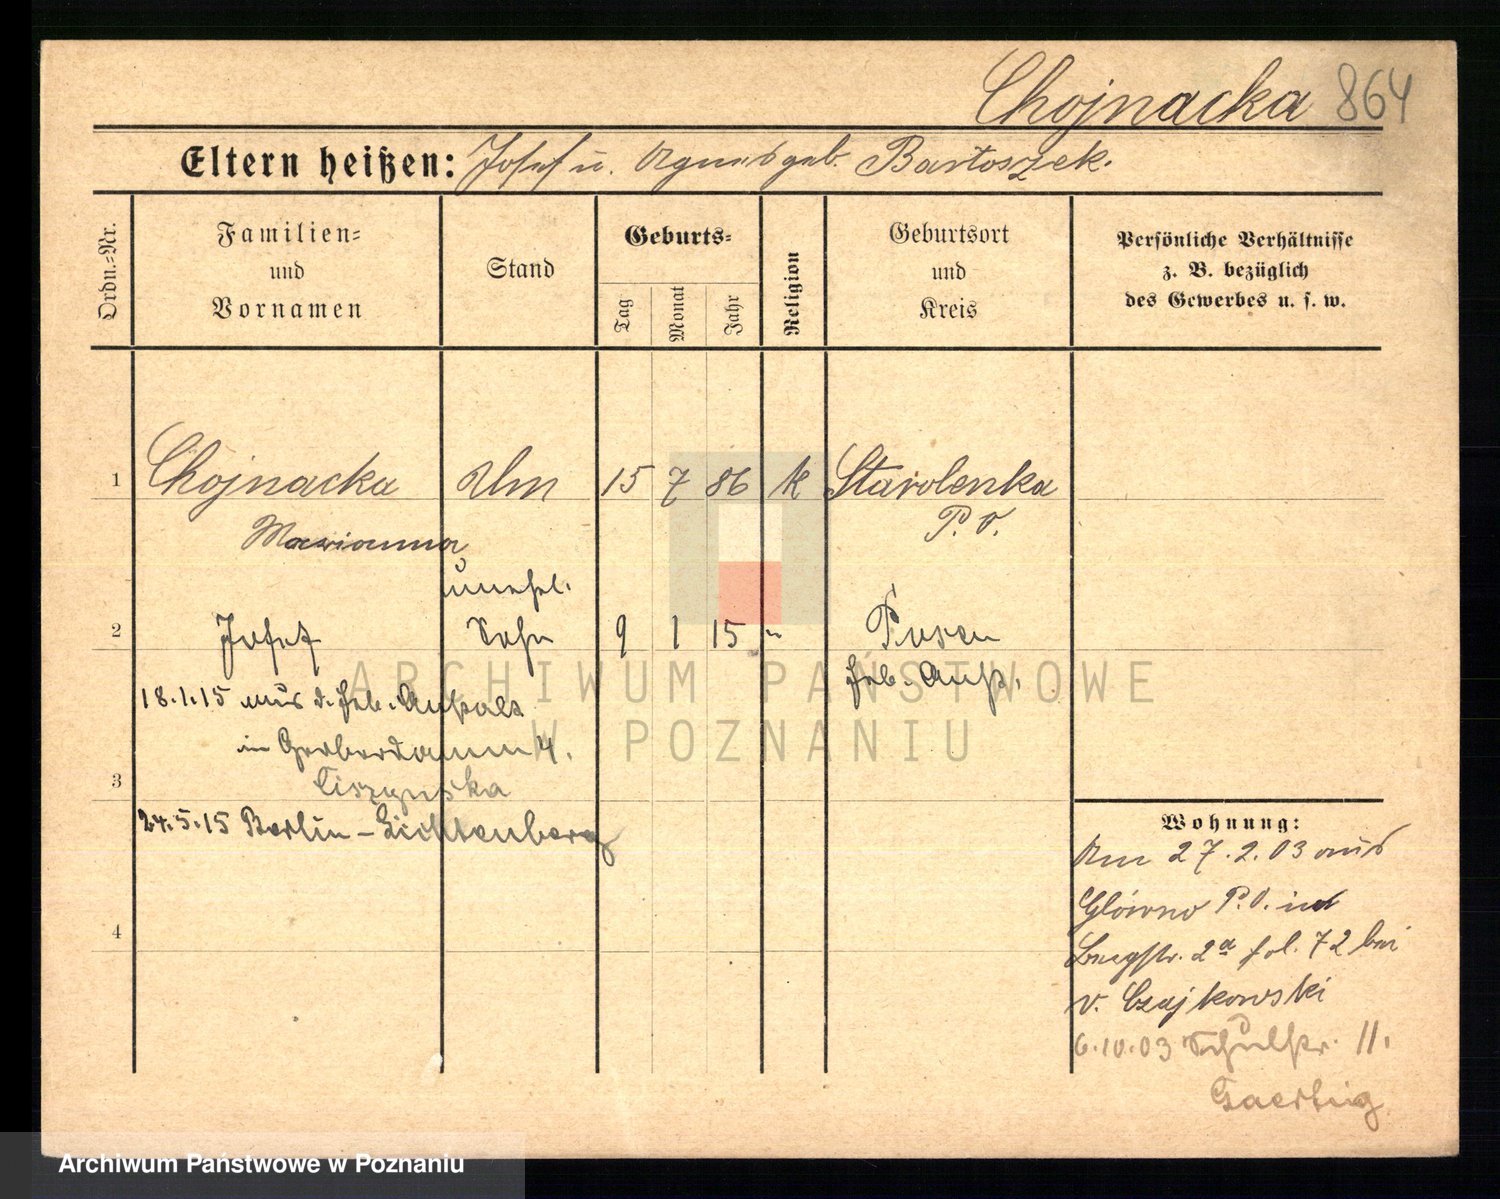 Chojnacka 864
Eltern heißen: Josef u. Agnes geb. Bartoszek.
Ordn.-Nr.
Familien-
und
Vornamen
Stand
Geburts-
Tag
Monat
Jahr
Religion
Geburtsort
und
Kreis
Persönliche Verhältnisse
z. B. bezüglich
des Gewerbes u. s. w.
1 Chojnacka 15 7 86 k Starolenka
Marianna P. O.
unehel.
2 Josef Sohn 9 1 15 " Posen
Heb. Anst.
18.1.15 aus d. Heb. Anstalt
in Gerberdamm 4.
3 Ciszynska
24.5.15 Berlin - Lichtenberg
4
Wohnung:
Am 27.2.03 aus
Glówno P.O. in
Burgstr. 2a fol. 72 bei
v. Czajkowski
6.10.03 Schulstr. 11.
Gaertig
ARCHIWUM PAŃSTWOWE
W POZNANIU
Archiwum Państwowe w Poznaniu